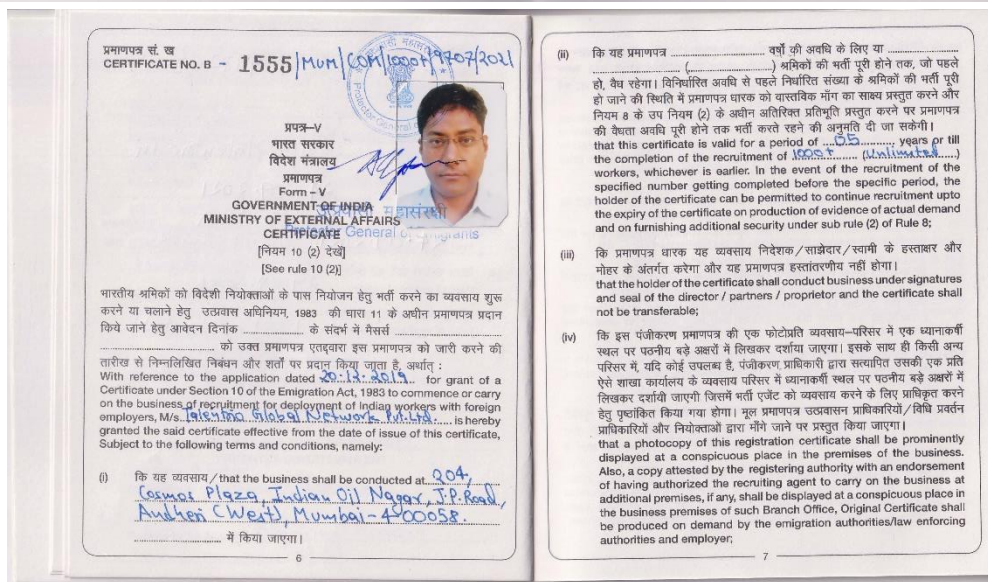 प्रमाणपत्र सं. ख
CERTIFICATE NO. B - 1555/MUM/COM/1000+/9707/2021
प्रपत्र–V
भारत सरकार
विदेश मंत्रालय
प्रमाणपत्र
Form – V
GOVERNMENT OF INDIA
MINISTRY OF EXTERNAL AFFAIRS
CERTIFICATE
महासंरक्षी
Protector General of Emigrants
[नियम 10 (2) देखें]
[See rule 10 (2)]
भारतीय श्रमिकों को विदेशी नियोक्ताओं के पास नियोजन हेतु भर्ती करने का व्यवसाय शुरू
करने या चलाने हेतु उत्प्रवास अधिनियम, 1983 की धारा 11 के अधीन प्रमाणपत्र प्रदान
किये जाने हेतु आवेदन दिनांक .................... के संदर्भ में मैसर्स ....................
.................... को उक्त प्रमाणपत्र एतद्द्वारा इस प्रमाणपत्र को जारी करने की
तारीख से निम्नलिखित निबंधन और शर्तों पर प्रदान किया जाता है, अर्थात् :
With reference to the application dated 20-12-2019 for grant of a
Certificate under Section 10 of the Emigration Act, 1983 to commence or carry
on the business of recruitment for deployment of Indian workers with foreign
employers, M/s. Talentma Global Network Pvt. Ltd. is hereby
granted the said certificate effective from the date of issue of this certificate,
Subject to the following terms and conditions, namely:
(i) कि यह व्यवसाय/that the business shall be conducted at 204,
Cosmos Plaza, Indian Oil Nagar, J.P. Road,
Andheri (West), Mumbai-400058.
.................... में किया जाएगा।
6
(ii) कि यह प्रमाणपत्र .................... वर्षों की अवधि के लिए या ....................
.................... (....................) श्रमिकों की भर्ती पूरी होने तक, जो पहले
हो, वैध रहेगा। विनिर्धारित अवधि से पहले निर्धारित संख्या के श्रमिकों की भर्ती पूरी
हो जाने की स्थिति में प्रमाणपत्र धारक को वास्तविक माँग का साक्ष्य प्रस्तुत करने और
नियम 8 के उप नियम (2) के अधीन अतिरिक्त प्रतिभूति प्रस्तुत करने पर प्रमाणपत्र
की वैधता अवधि पूरी होने तक भर्ती करते रहने की अनुमति दी जा सकेगी।
that this certificate is valid for a period of ....05.... years or till
the completion of the recruitment of 1000+ (Unlimited)
workers, whichever is earlier. In the event of the recruitment of the
specified number getting completed before the specific period, the
holder of the certificate can be permitted to continue recruitment upto
the expiry of the certificate on production of evidence of actual demand
and on furnishing additional security under sub rule (2) of Rule 8;
(iii) कि प्रमाणपत्र धारक यह व्यवसाय निदेशक/साझेदार/स्वामी के हस्ताक्षर और
मोहर के अंतर्गत करेगा और यह प्रमाणपत्र हस्तांतरणीय नहीं होगा।
that the holder of the certificate shall conduct business under signatures
and seal of the director / partners / proprietor and the certificate shall
not be transferable;
(iv) कि इस पंजीकरण प्रमाणपत्र की एक फोटोप्रति व्यवसाय–परिसर में एक ध्यानाकर्षी
स्थल पर पठनीय बड़े अक्षरों में लिखकर दर्शाया जाएगा। इसके साथ ही किसी अन्य
परिसर में, यदि कोई उपलब्ध है, पंजीकरण प्राधिकारी द्वारा सत्यापित उसकी एक प्रति
ऐसे शाखा कार्यालय के व्यवसाय परिसर में ध्यानाकर्षी स्थल पर पठनीय बड़े अक्षरों में
लिखकर दर्शायी जाएगी जिसमें भर्ती एजेंट को व्यवसाय करने के लिए प्राधिकृत करने
हेतु पृष्ठांकित किया गया होगा। मूल प्रमाणपत्र उत्प्रवासन प्राधिकारियों/विधि प्रवर्तन
प्राधिकारियों और नियोक्ताओं द्वारा माँगे जाने पर प्रस्तुत किया जाएगा।
that a photocopy of this registration certificate shall be prominently
displayed at a conspicuous place in the premises of the business.
Also, a copy attested by the registering authority with an endorsement
of having authorized the recruiting agent to carry on the business at
additional premises, if any, shall be displayed at a conspicuous place in
the business premises of such Branch Office, Original Certificate shall
be produced on demand by the emigration authorities/law enforcing
authorities and employer;
7